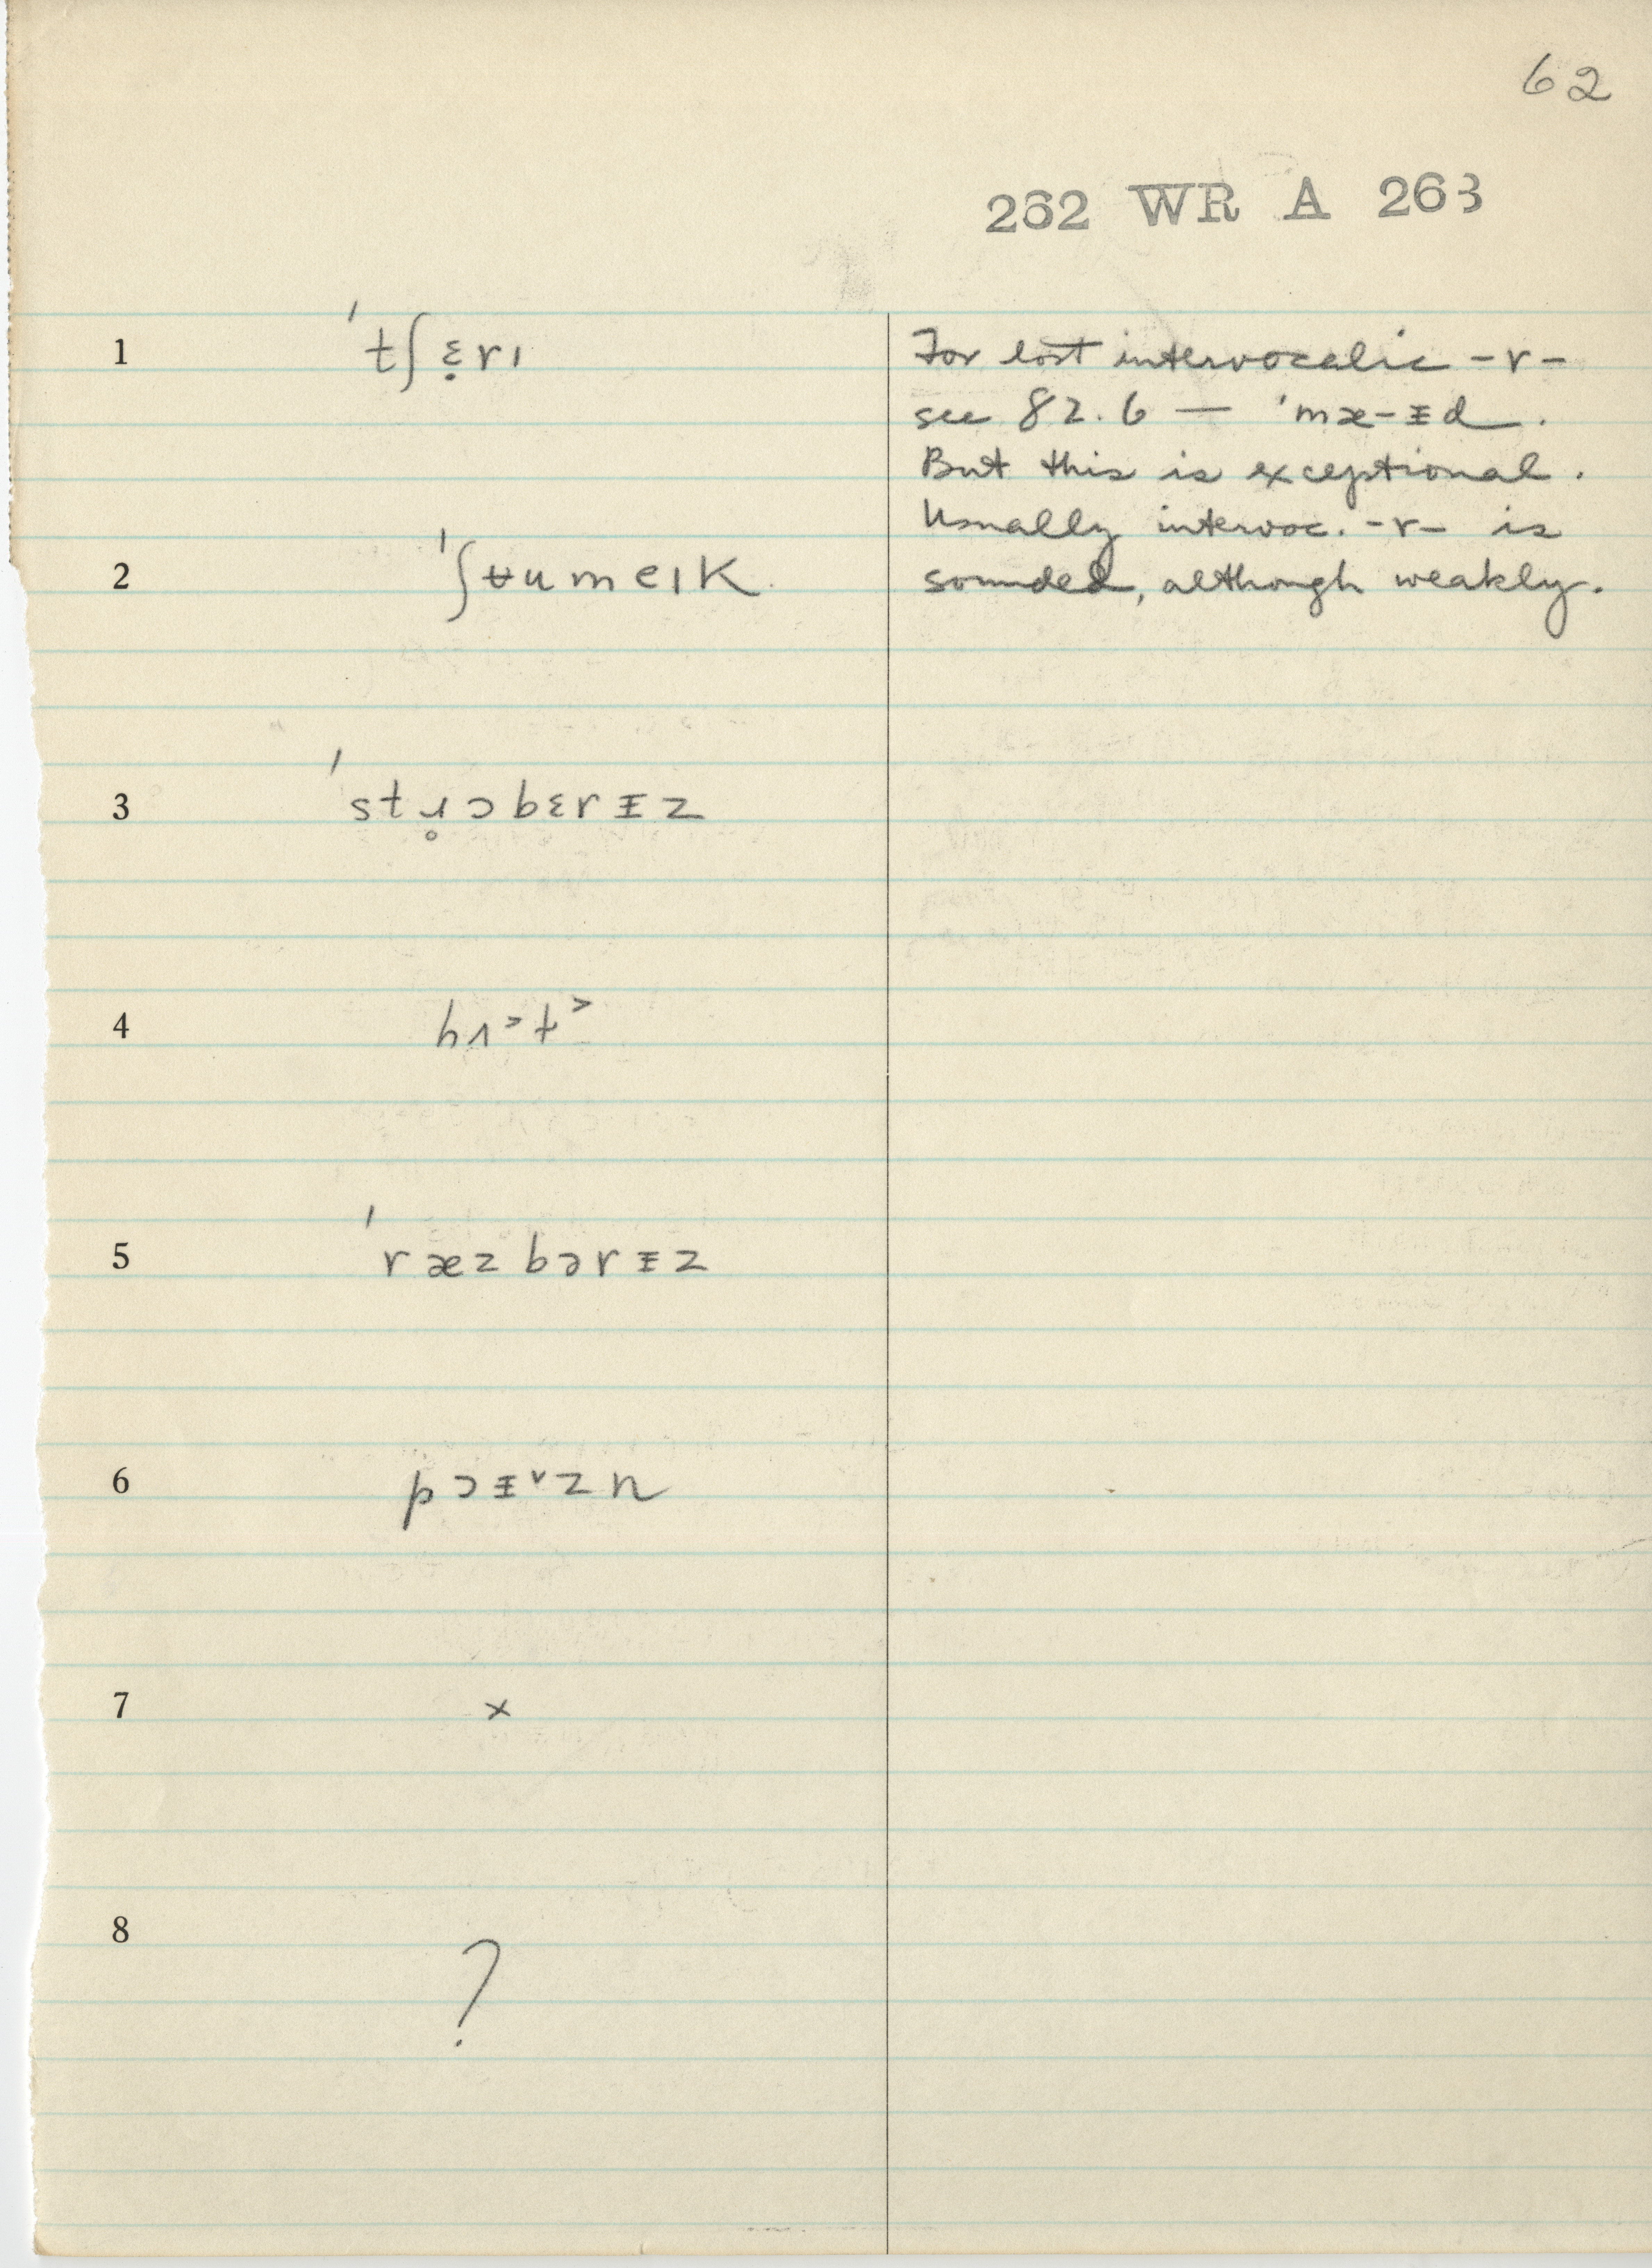 62
262 WR A 263
1 ˈtʃɛ̣rɪ
For lost intervocalic -r-
see 82.6 — ˈmæ-ᵻd.
But this is exceptional.
Usually intervoc. -r- is
2 ˈʃʉumeɪk
sounded, although weakly.
3 ˈstɹ̥ɔbɛrᵻz
4
5 ˈræzbərᵻz
6 pɔᵻᶺzn
7 x
8 ?